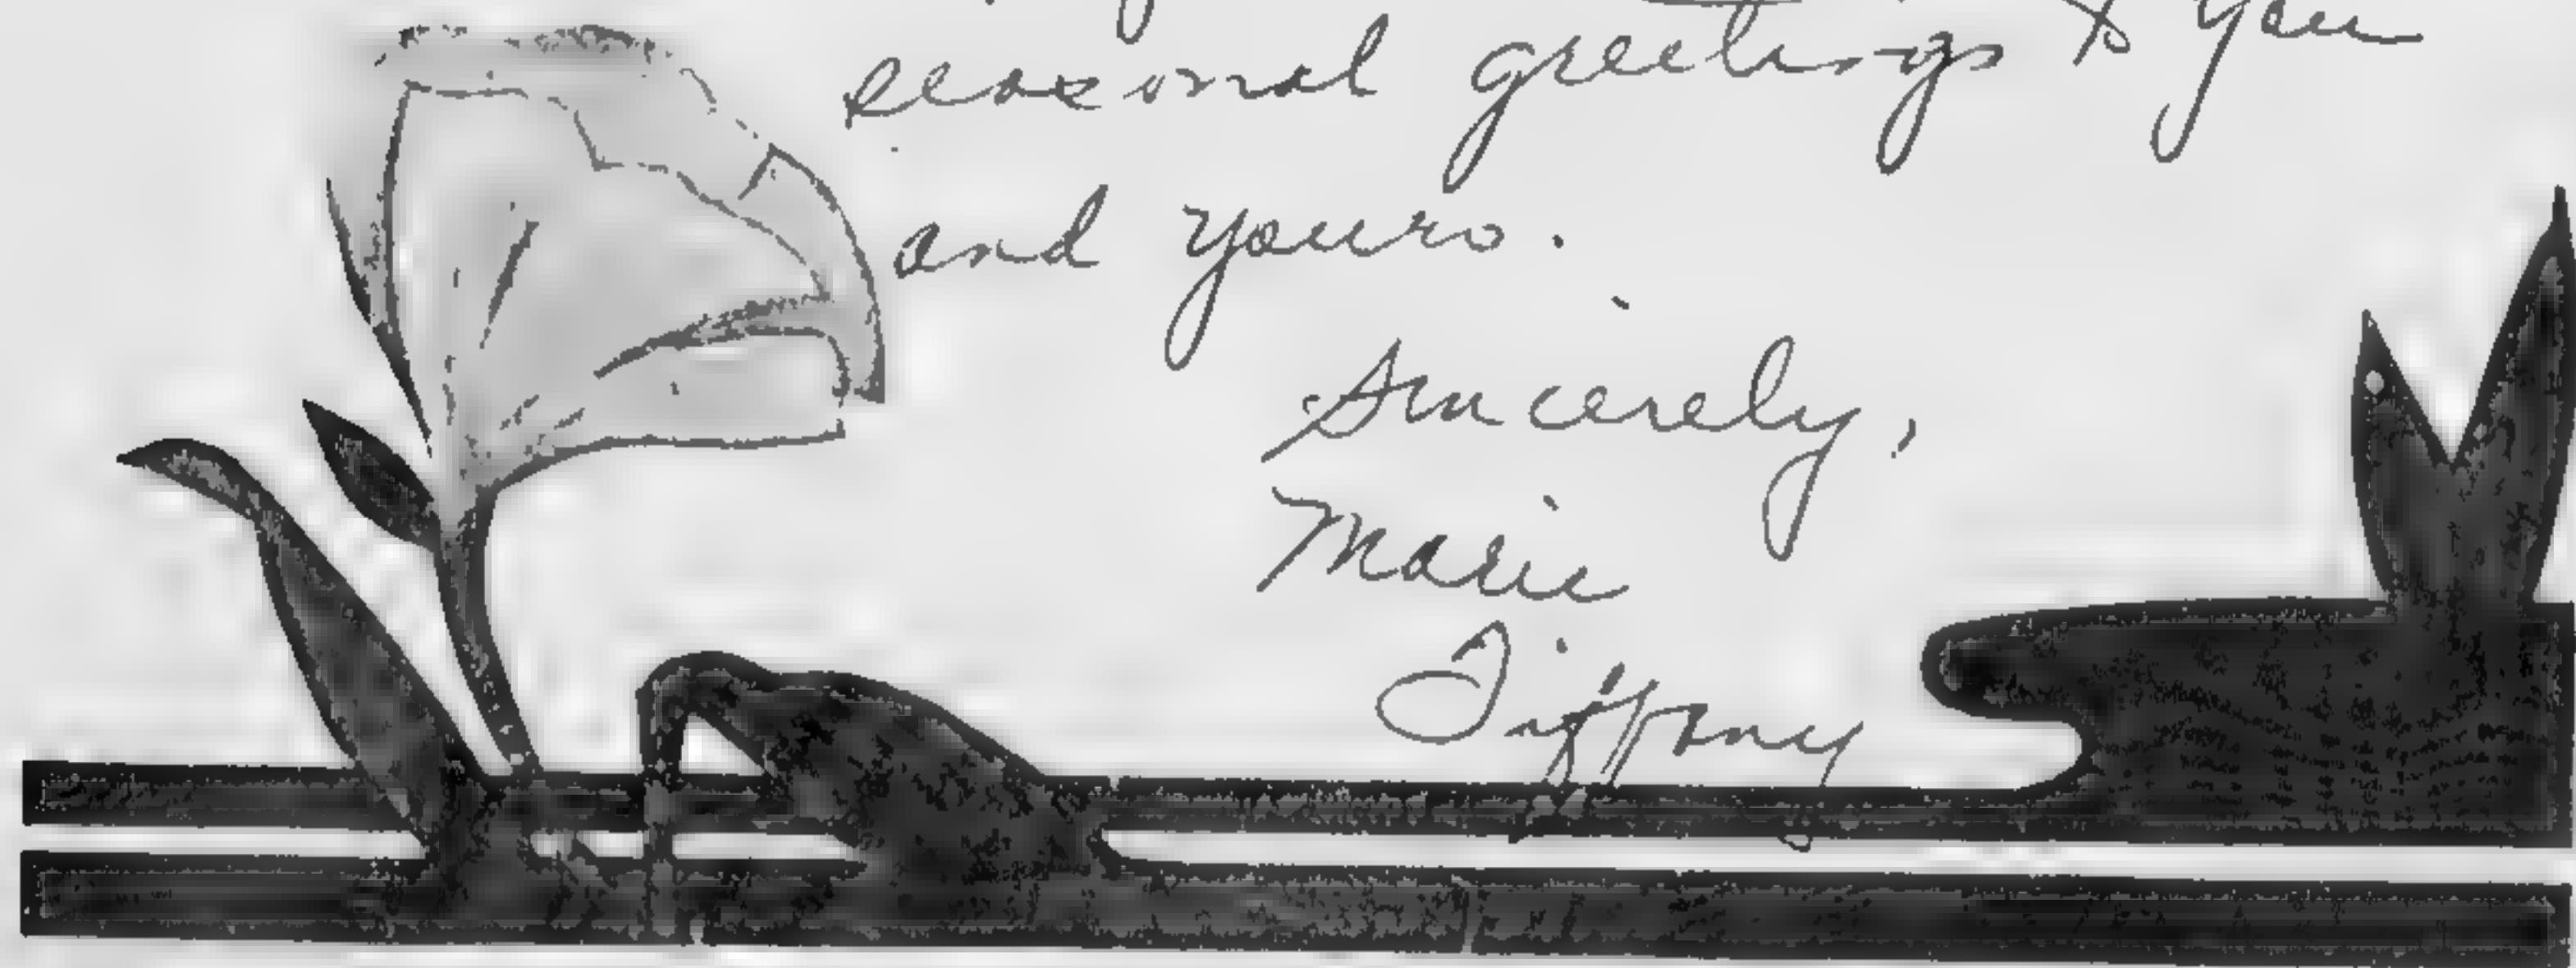 seasonal greetings to you
and yours.
Sincerely,
Marie
Tiffany